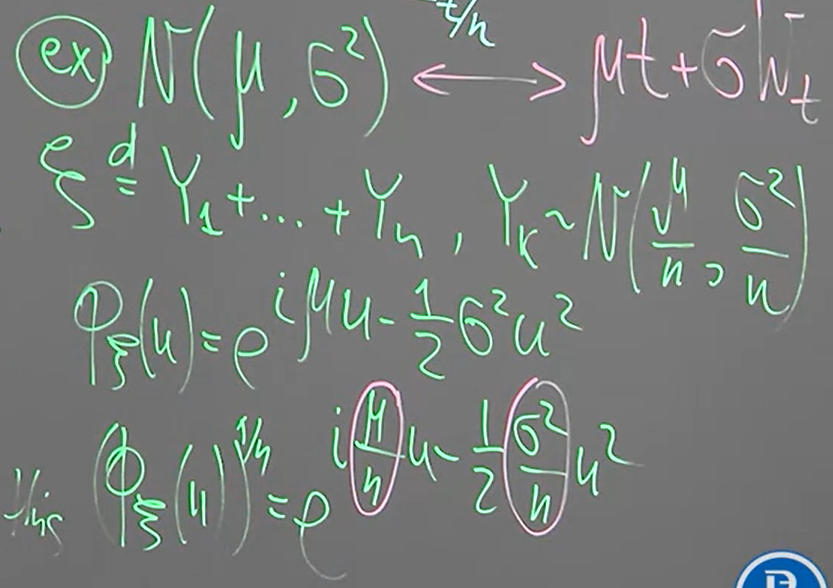 t/n
ex N(μ, σ²) ⟷ μt + σW_t
ξ \stackrel{d}{=} Y₁ + ... + Yₙ, Y_k ~ N(μ/n, σ²/n)
φ_ξ(u) = e^{iμu - ½σ²u²}
(φ_ξ(u))^{1/n} = e^{i(μ/n)u - ½(σ²/n)u²}